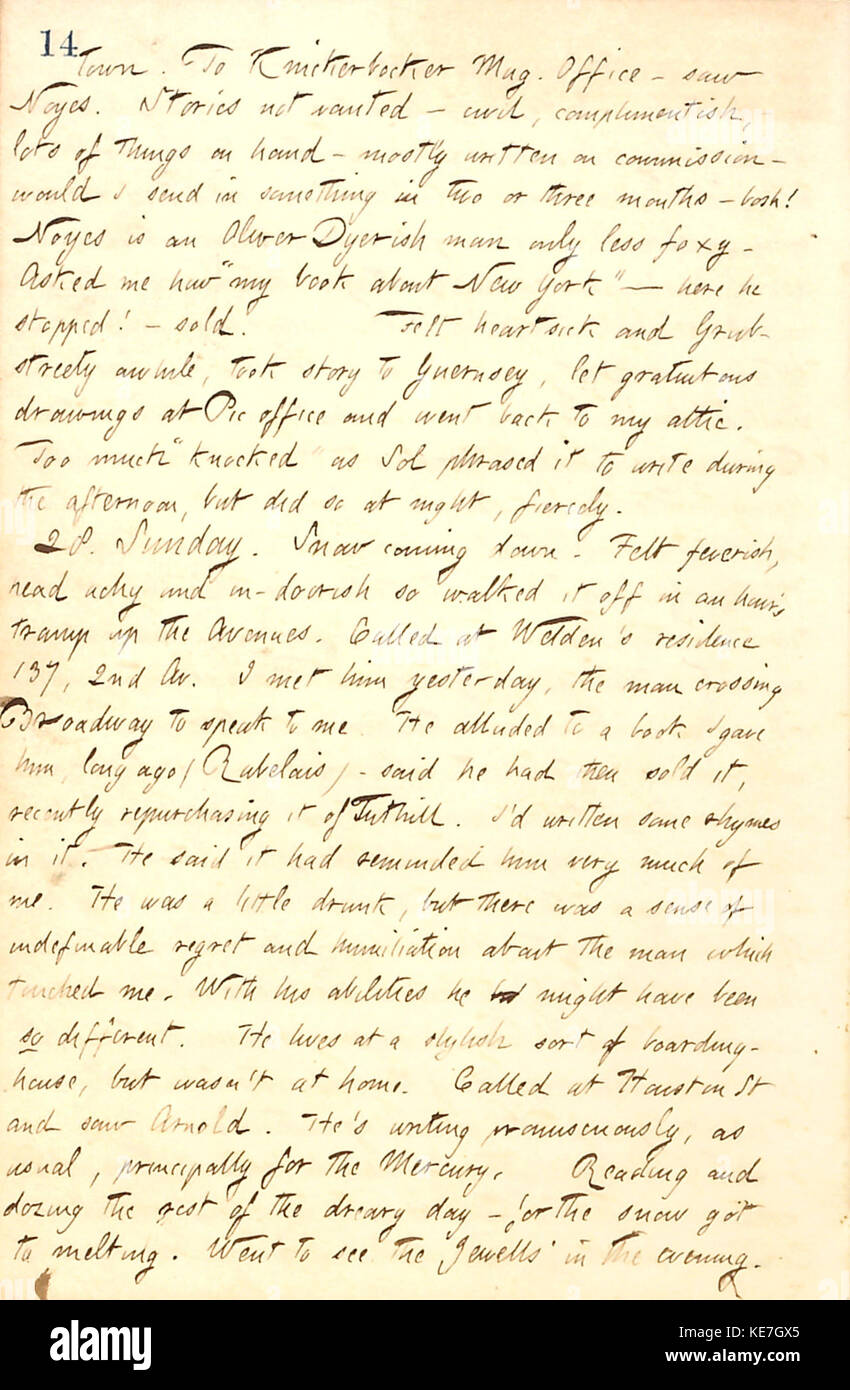 14
town. To Knickerbocker Mag. Office - saw
Noyes. Stories not wanted - civil, complimentish,
lots of things on hand - mostly written on commission -
would I send in something in two or three months - bosh!
Noyes is an Oliver Dyerish man only less foxy -
Asked me how "my book about New York" — here he
stopped! - sold. Felt heartsick and Grub-
streety awhile, took story to Guernsey, let gratuitous
drawings at Pic office and went back to my attic.
Too much "knocked" as Sol phrased it to write during
the afternoon, but did so at night, fiercely.
28. Sunday. Snow coming down - Felt feverish,
head achy and in-doorish so walked it off in an hour's
tramp up the Avenues. Called at Welden's residence
137, 2nd Av. I met him yesterday, the man crossing
Broadway to speak to me. He alluded to a book I gave
him, long ago (Rabelais) - said he had then sold it,
recently repurchasing it of Tuthill. I'd written some rhymes
in it. He said it had reminded him very much of
me. He was a little drunk, but there was a sense of
indefinable regret and humiliation about the man which
touched me. With his abilities he might have been
so different. He lives at a stylish sort of boarding-
house, but wasn't at home. Called at Houston St
and saw Arnold. He's writing promiscuously, as
usual, principally for the Mercury. Reading and
dozing the rest of the dreary day - for the snow got
to melting. Went to see the Jewells' in the evening.
alamy
Image ID: KE7GX5
www.alamy.com